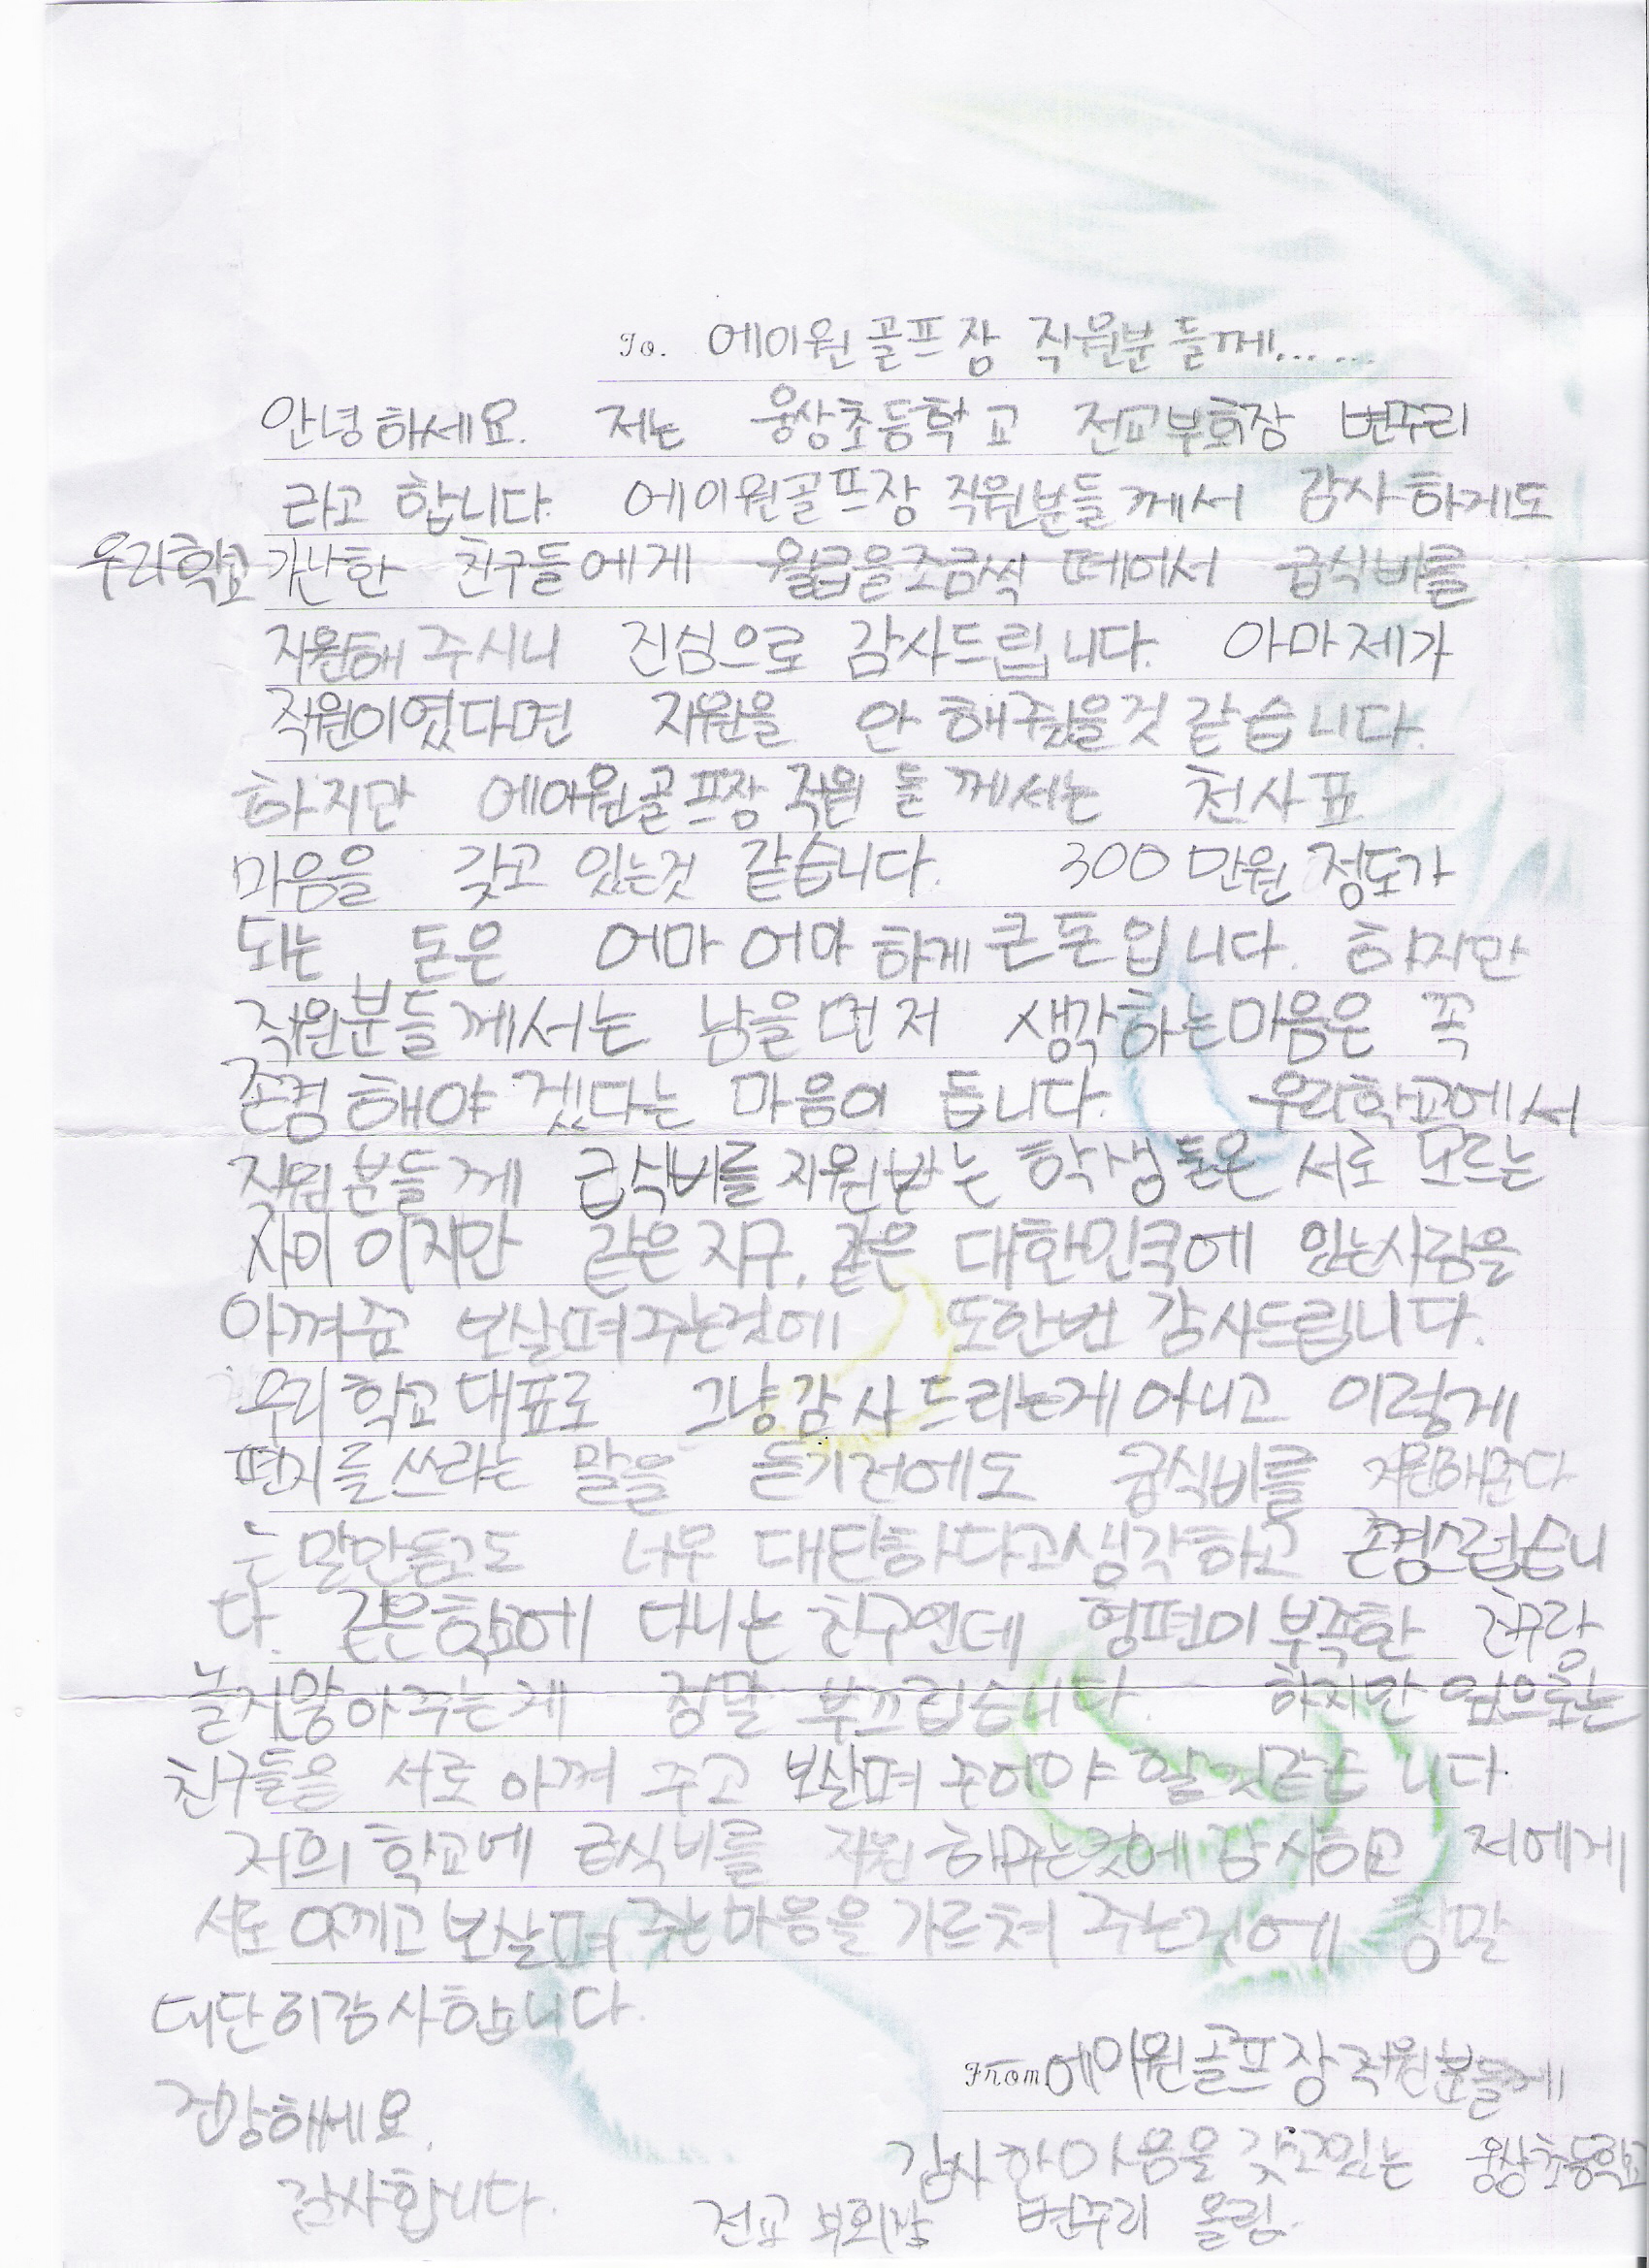 To. 에이원골프장 직원분들께......
안녕하세요. 저는 웅상초등학교 전교부회장 변주리
라고 합니다. 에이원골프장 직원분들께서 감사하게도
우리학교 가난한 친구들에게 월급을조금씩 떼어서 급식비를
지원해 주시니 진심으로 감사드립니다. 아마 제가
직원이였다면 지원을 안 해줬을것 같습니다.
하지만 에이원골프장 직원 들께서는 천사표
마음을 갖고 있는것 같습니다. 300만원 정도가
되는 돈은 어마어마하게 큰돈입니다. 하지만
직원분들께서는 남을먼저 생각하는마음은 꼭
존경해야 겠다는 마음이 듭니다. 우리학교에서
직원분들께 급식비를 지원받는 학생들은 서로 모르는
사이 이지만 같은 지구, 같은 대한민국에 있는사람을
아껴주고 보살펴주는것에 또한번 감사드립니다.
우리학교대표로 그냥감사드리는게아니고 이렇게
편지를쓰라는 말을 듣기전에도 급식비를 지원해준다
는 말만듣고도 너무 대단하다고생각하고 존경스럽습니
다. 같은학교에 다니는 친구인데 형편이부족한 친구랑
놀지않아주는게 정말 부끄럽습니다. 하지만 앞으로는
친구들을 서로 아껴 주고 보살펴 주어야 할것같습니다.
저희 학교에 급식비를 지원 해주는것에감사하고 저에게
서로 아끼고보살펴 주는마음을 가르쳐 주는것에 정말
대단히감사합니다.
건강하세요.
감사합니다.
From.에이원골프장직원분들에
감사한마음을 갖고있는 웅상초등학교
전교 부회장 변주리 올림.